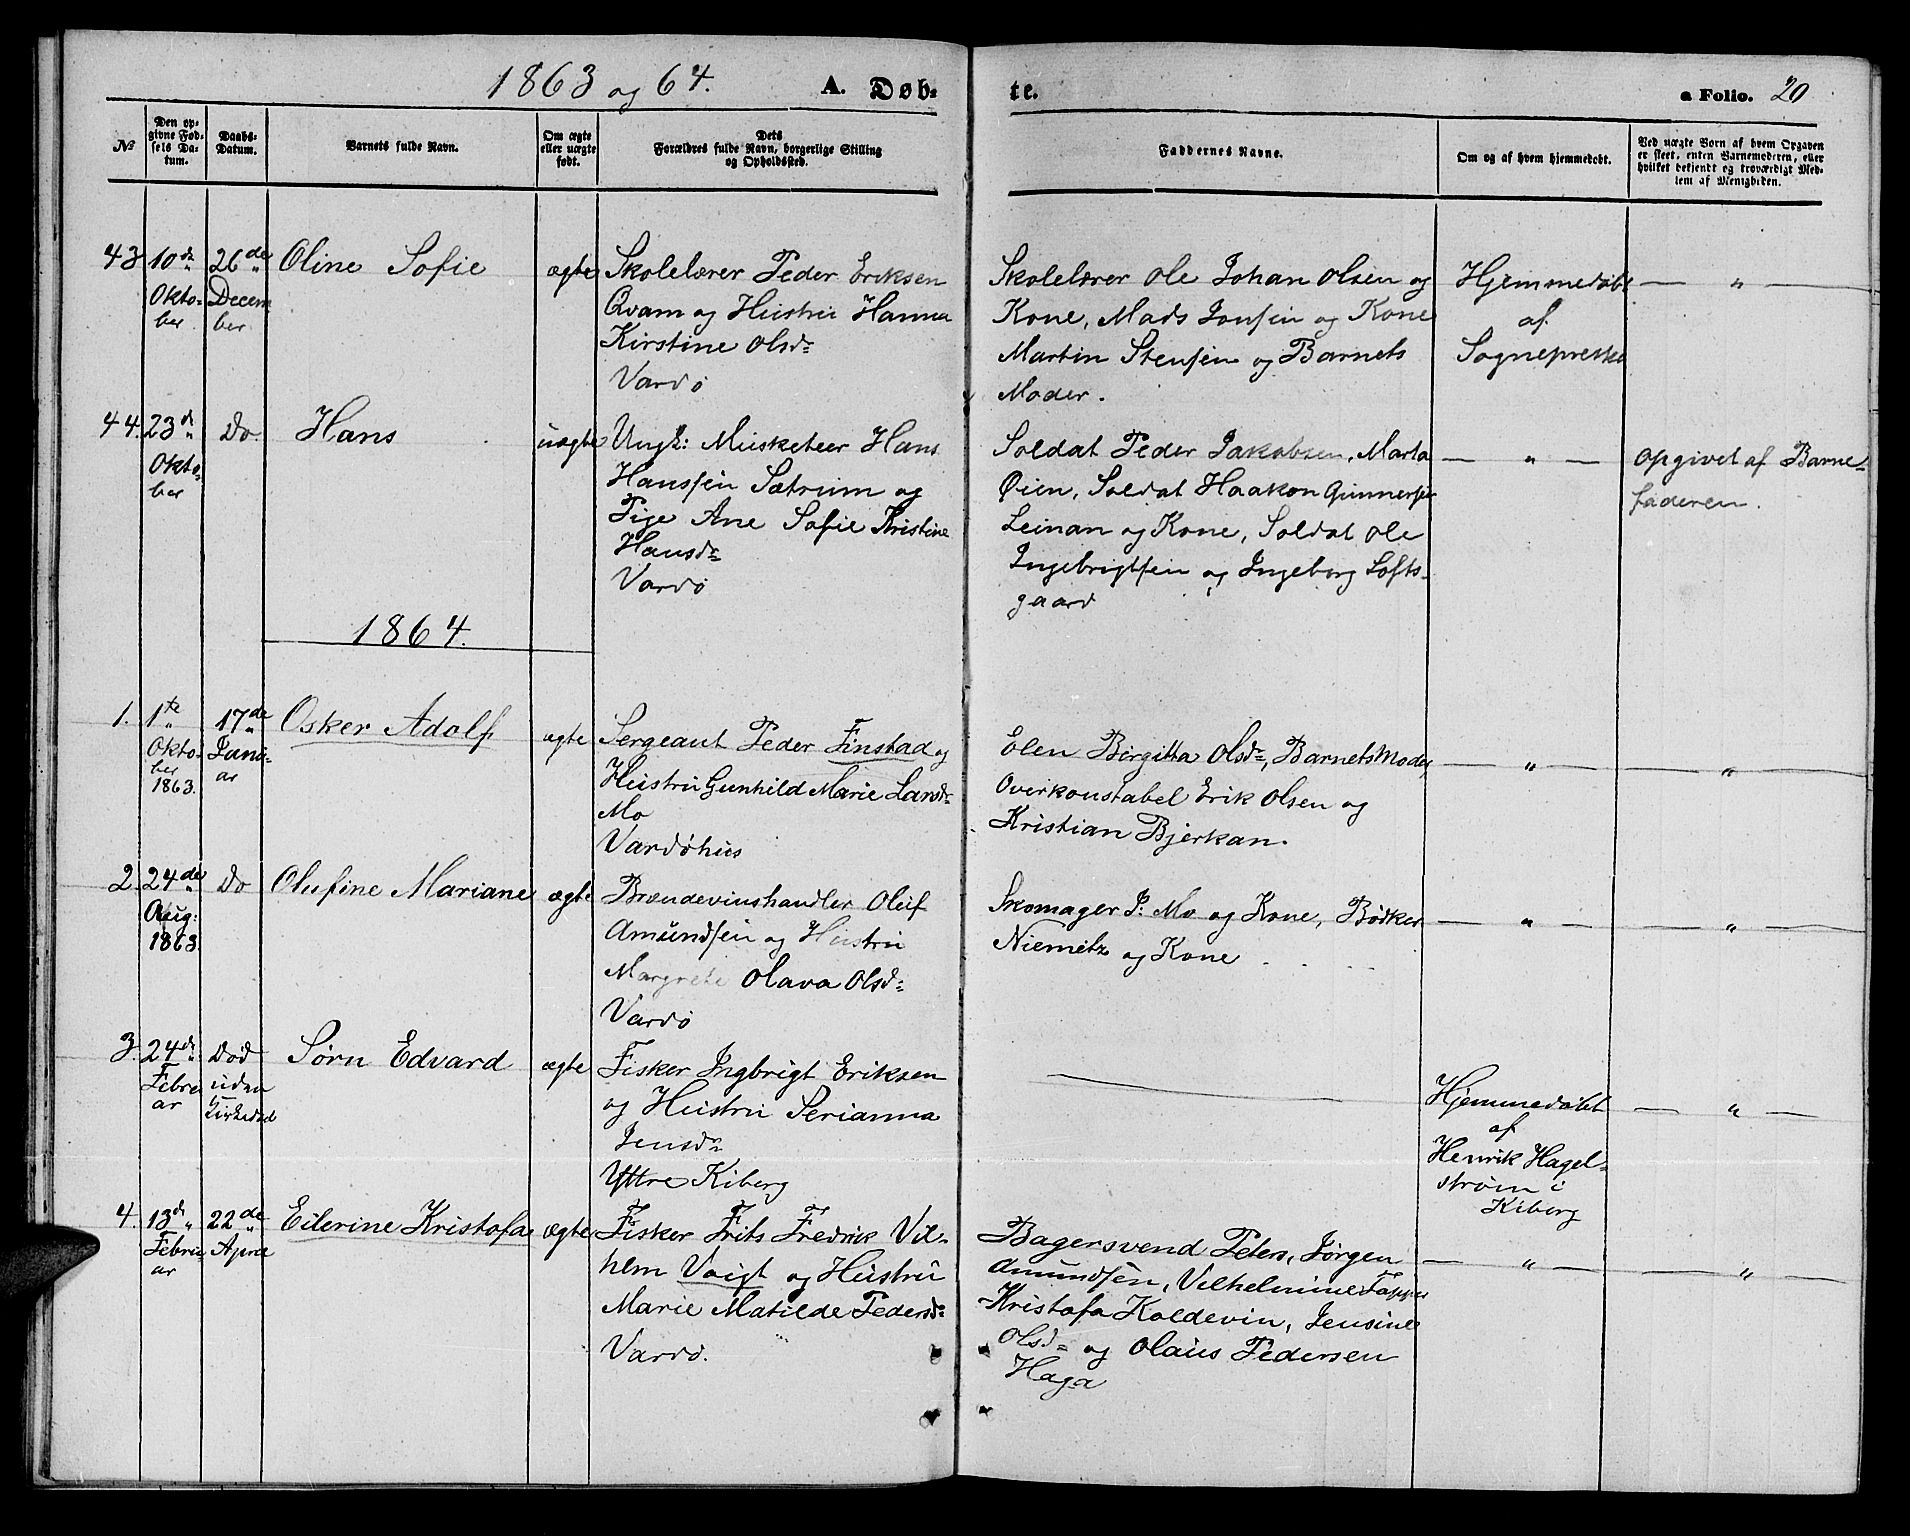 1863 og 64.
A. Døb-
te.
a Folio. 20
№
Den op-
givne Fød-
sels Da-
tum.
Daabs-
Datum.
Barnets fulde Navn.
Om ægte
eller uægte
født.
Dets
Forældres fulde Navn, borgerlige Stilling
og Opholdssted.
Faddernes Navne.
Om og af hvem hjemmedøbt.
Ved uægte Børn af hvem Opgaven
er skeet, enten Barnemoderen, eller
hvilket bekjendt og troværdigt Med-
lem af Menigheden.
43
10de
Okto-
ber
26de
Decem
ber
Oline Sofie
ægte
Skolelærer Peder Eriksen
Qvam og Hustru Hanna
Kirstine Olsd.
Vardø
Skolelærer Ole Johan Olsen og
Kone, Mads Jonsen og Kone
Martin Stensen og Barnets
Moder.
Hjemmedøbt
af
Sognepresten
— " —
44.
23d
Okto-
ber
Do.
Hans
uægte
Ungk: Musketeer Hans
Hanssen Sætrum og
Pige Ane Sofie Kristine
Hansd.
Vardø
Soldat Peder Jakobsen, Marta
Øien, Soldat Haakon Gunnersen
Leinan og Kone, Soldat Ole
Ingebrigtsen og Ingeborg Lofts-
gaard
— " —
Opgivet af Barne-
faderen.
1864.
1.
1te
Okto-
ber
1863.
17de
Janu-
ar
Osker Adolf
ægte
Sergeant Peder Finstad og
Hustru Gunhild Marie Larsd.
Mo
Vardøhus
Elen Birgitta Olsd., Barnets Moder,
Overkonstabel Erik Olsen og
Kristian Bjerkan.
— " —
— " —
2.
24de
Aug:
1863.
Do
Olufine Mariane
ægte
Brændevinshandler Oluf
Amundsen og Hustru
Margrete Olava Olsd.
Vardø
Skomager P. Mo og Kone, Bødker
Niemetz og Kone
— " —
— " —
3.
24d
Febru
ar
Død
uden
Kirkedaab
Sørn Edvard
ægte
Fisker Ingbrigt Eriksen
og Hustru Serianna
Jensd.
Yttre Kiberg
Hjemmedøbt
af
Henrik Hagel-
strøm i
Kiberg
— " —
4.
13d
Febru-
ar
22de
April
Eilerine Kristofa
ægte
Fisker Frits Fredrik Vil-
helm Voigt og Hustru
Marie Matilde Pedersd.
Vardø.
Bagersvend Peters, Jørgen
Amundsen, Vilhelmine
Kristofa Koldevin, Jensine
Olsd. og Olaus Pedersen
Haga
— " —
— " —